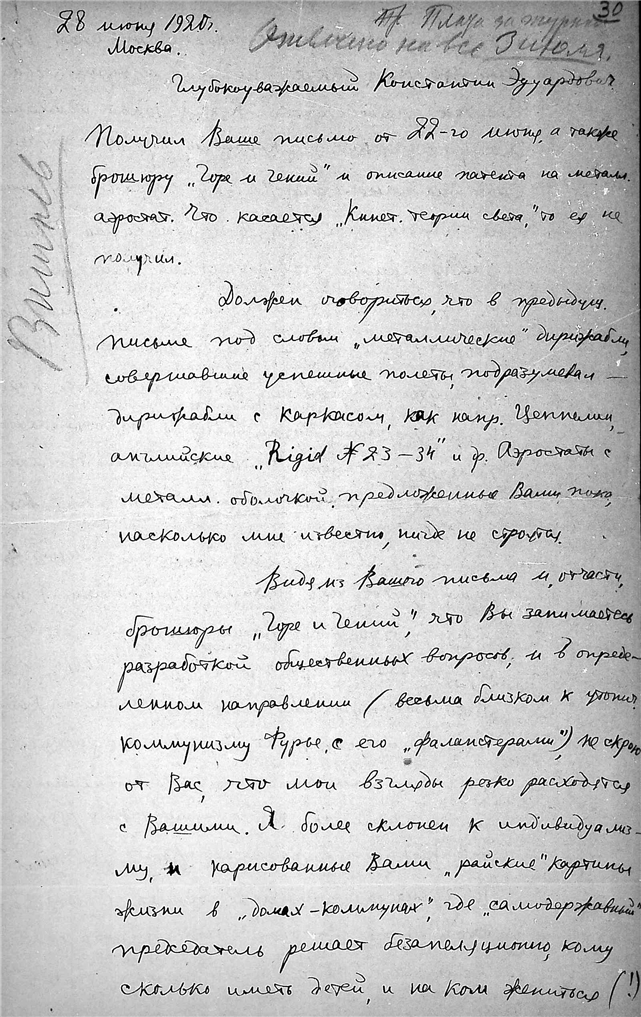 30
28 июня 1920г.
Москва.
Отвечено на все 3 июля.
Глубокоуважаемый Константин Эдуардович
Получил Ваше письмо от 22-го июня, а также
брошюру „Горе и Гений" и описание патента на металл.
аэростат. Что касается „Кинет. теории света," то ея не
получил.
Вишнев
Должен оговориться, что в предыдущ.
письме под словом „металлические" дирижабли,
совершавшие успешные полеты, подразумевал —
дирижабли с каркасом, как напр. Цеппелин,
английские „Rigid № 23–34" и ф. Аэростаты с
металл. оболочкой, предложенные Вами, пока,
насколько мне известно, нигде не строятся.
Видя из Вашего письма и, отчасти,
брошюры „Горе и Гений", что Вы занимаетесь
разработкой общественных вопросов, и в опреде-
ленном направлении (весьма близком к утопич.
коммунизму Фурье, с его „фаланстерами"), не скрою
от Вас, что мои взгляды резко расходятся
с Вашими. Я более склонен к индивидуализ-
му, и нарисованные Вами „райские" картины
жизни в „домах-коммунах", где „самодержавный"
председатель решает безапеляционно, кому
сколько иметь детей, и на ком жениться (!)